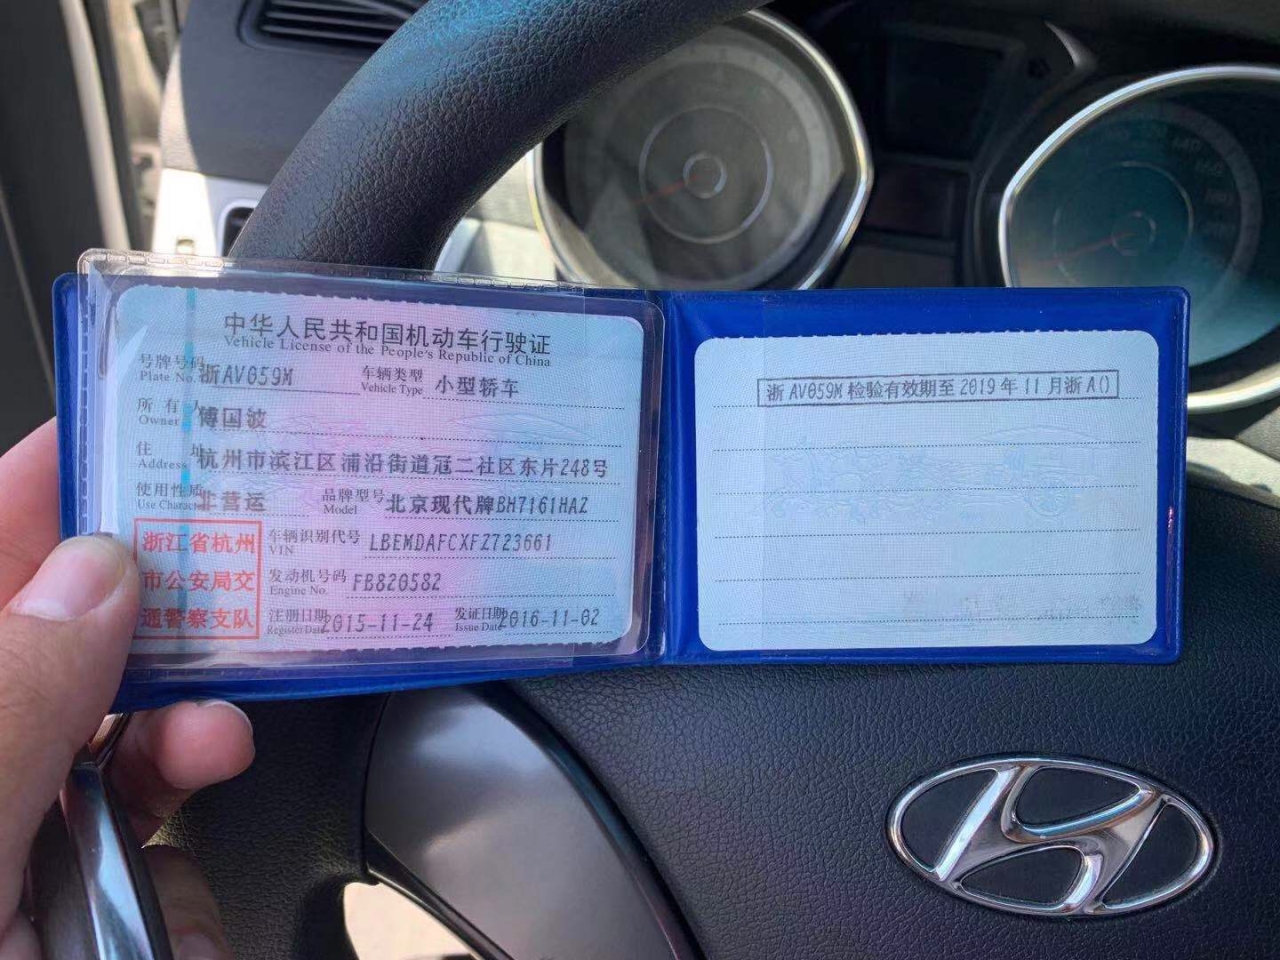 中华人民共和国机动车行驶证
Vehicle License of the People's Republic of China
号牌号码 浙AV059M 车辆类型 小型轿车
Plate No. Vehicle Type
所有人 傅国波
Owner
住址 杭州市滨江区浦沿街道冠二社区东片248号
Address
使用性质 非营运 品牌型号 北京现代牌BH7161HAZ
Use Character Model
浙江省杭州
市公安局交
通警察支队
车辆识别代号 LBEMDAFCXFZ723661
VIN
发动机号码 FB820582
Engine No.
注册日期 2015-11-24 发证日期 2016-11-02
Register Date Issue Date
浙AV059M检验有效期至2019年11月浙A()